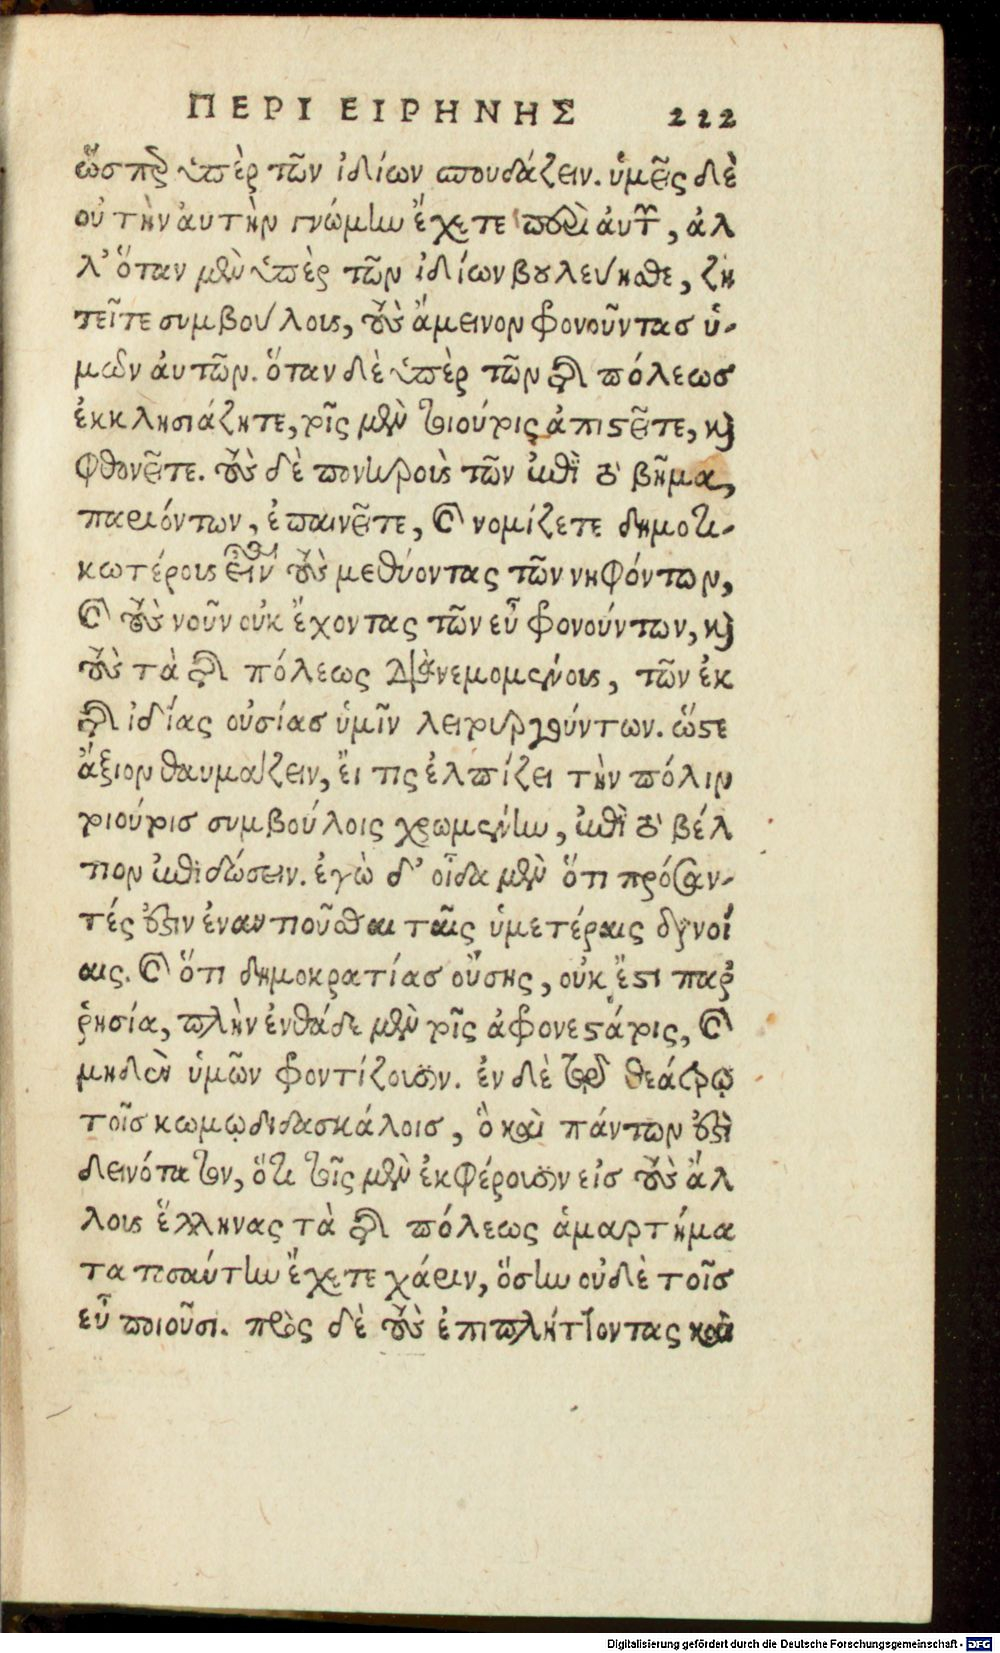 ΠΕΡΙ ΕΙΡΗΝΗΣ 222
ὥσπερ ὑπὲρ τῶν ἰδίων σπουδάζειν. ὑμεῖς δὲ
οὐ τὴν αὐτὴν γνώμην ἔχετε περὶ αὐτῶν, ἀλ
λ' ὅταν μὲν ὑπὲρ τῶν ἰδίων βουλεύησθε, ζη
τεῖτε συμβούλους, τοὺς ἄμεινον φρονοῦντας ὑ-
μῶν αὐτῶν. ὅταν δὲ ὑπὲρ τῶν τῆς πόλεως
ἐκκλησιάζητε, τοῖς μὲν τοιούτοις ἀπιστεῖτε, καὶ
φθονεῖτε. τοὺς δὲ πονηροὺς τῶν ἐπὶ τὸ βῆμα,
παριόντων, ἐπαινεῖτε, καὶ νομίζετε δημοτι-
κωτέρους εἶναι τοὺς μεθύοντας τῶν νηφόντων,
καὶ τοὺς νοῦν οὐκ ἔχοντας τῶν εὖ φρονούντων, καὶ
τοὺς τὰ τῆς πόλεως διανεμομένους, τῶν ἐκ
τῆς ἰδίας οὐσίας ὑμῖν λειτουργούντων. ὥστε
ἄξιον θαυμάζειν, εἴ τις ἐλπίζει τὴν πόλιν
τοιούτοις συμβούλοις χρωμένην, ἐπὶ τὸ βέλ
τιον ἐπιδώσειν. ἐγὼ δ' οἶδα μὲν ὅτι πρόσαν-
τές ἐστιν ἐναντιοῦσθαι ταῖς ὑμετέραις διανοί
αις. καὶ ὅτι δημοκρατίας οὔσης, οὐκ ἔστι παρ
ῥησία, πλὴν ἐνθάδε μὲν τοῖς ἀφρονεστάτοις, καὶ
μηδὲν ὑμῶν φροντίζουσιν. ἐν δὲ τῷ θεάτρῳ
τοῖς κωμῳδιδασκάλοις, ὃ καὶ πάντων ἐστὶ
δεινότατον, ὅτι τοῖς μὲν ἐκφέρουσιν εἰς τοὺς ἄλ
λους ἕλληνας τὰ τῆς πόλεως ἁμαρτήμα
τα τοσαύτην ἔχετε χάριν, ὅσην οὐδὲ τοῖς
εὖ ποιοῦσι. πρὸς δὲ τοὺς ἐπιπλήττοντας καὶ
Digitalisierung gefördert durch die Deutsche Forschungsgemeinschaft - DFG